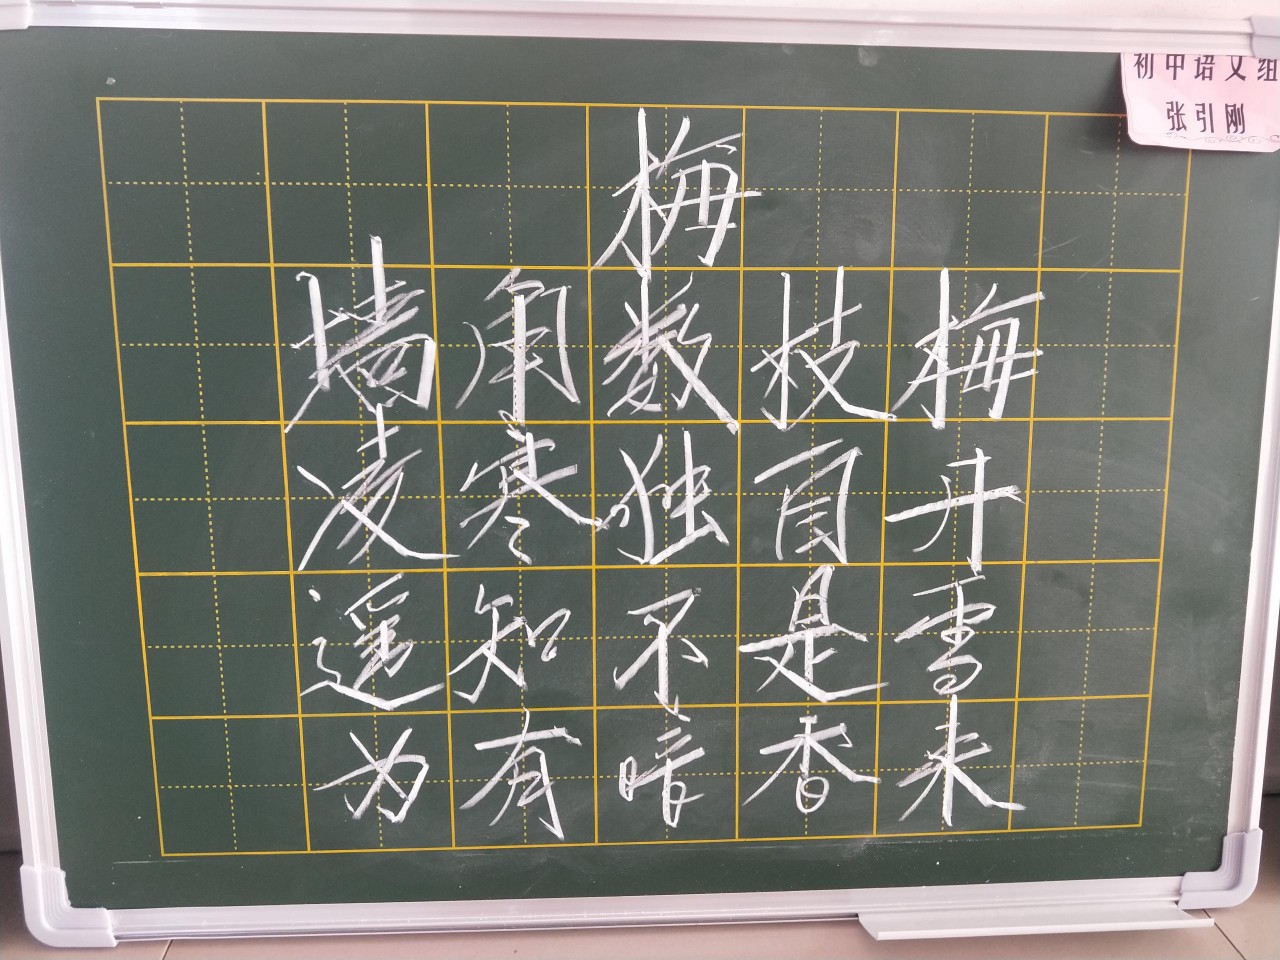 初中语文组
张引刚
梅
墙角数枝梅
凌寒独自开
遥知不是雪
为有暗香来